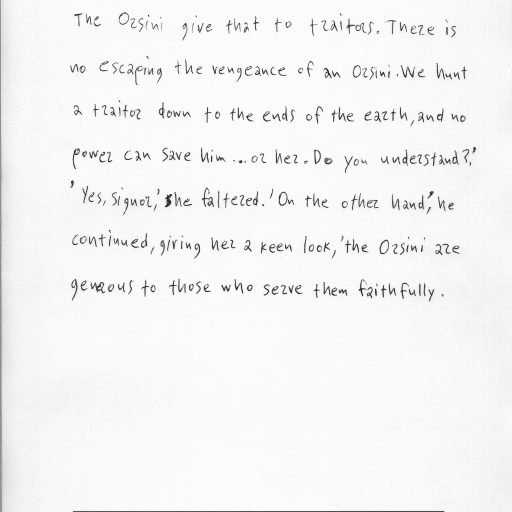 The Orsini give that to traitors. There is
no escaping the vengeance of an Orsini. We hunt
a traitor down to the ends of the earth, and no
power can save him... or her. Do you understand?'
'Yes, signor,' she faltered. 'On the other hand,' he
continued, giving her a keen look, 'the Orsini are
generous to those who serve them faithfully.